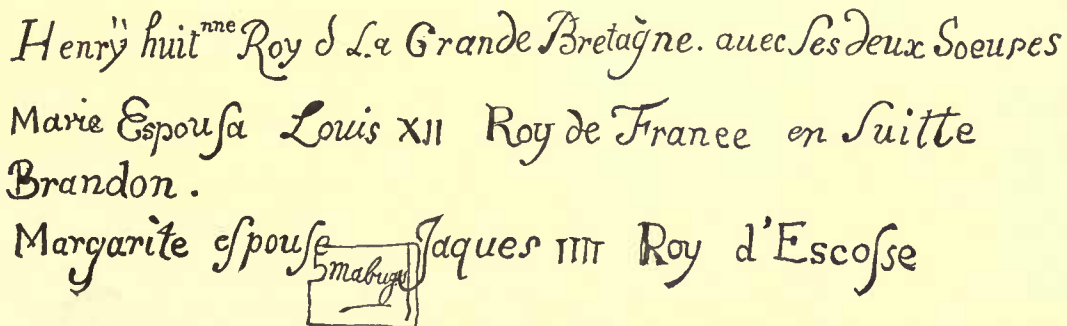 Henrÿ huit^nne Roy d La Grande Bretagne. auec ses deux Soeures
Marie Espousa Louis XII Roy de France en suitte
Brandon.
Margarite espouse Jaques IIII Roy d'Escosse
mabuge